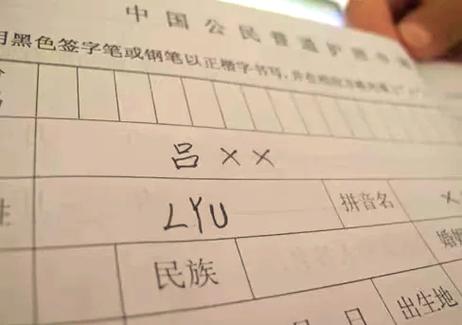 中国公民普通护照申请
用黑色签字笔或钢笔以正楷字书写,并在相应
吕××
姓 LYU 拼音名 ×
民族 婚姻
日 出生地